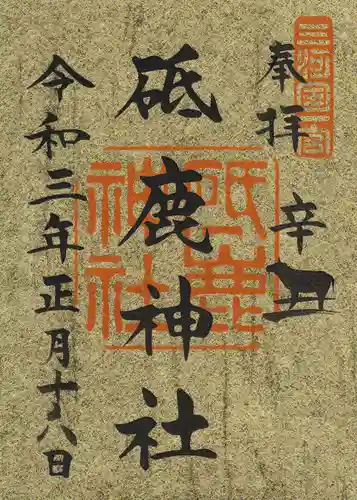 三河國一宮
奉拝 辛丑
砥鹿神社
砥鹿神社
令和三年正月十八日